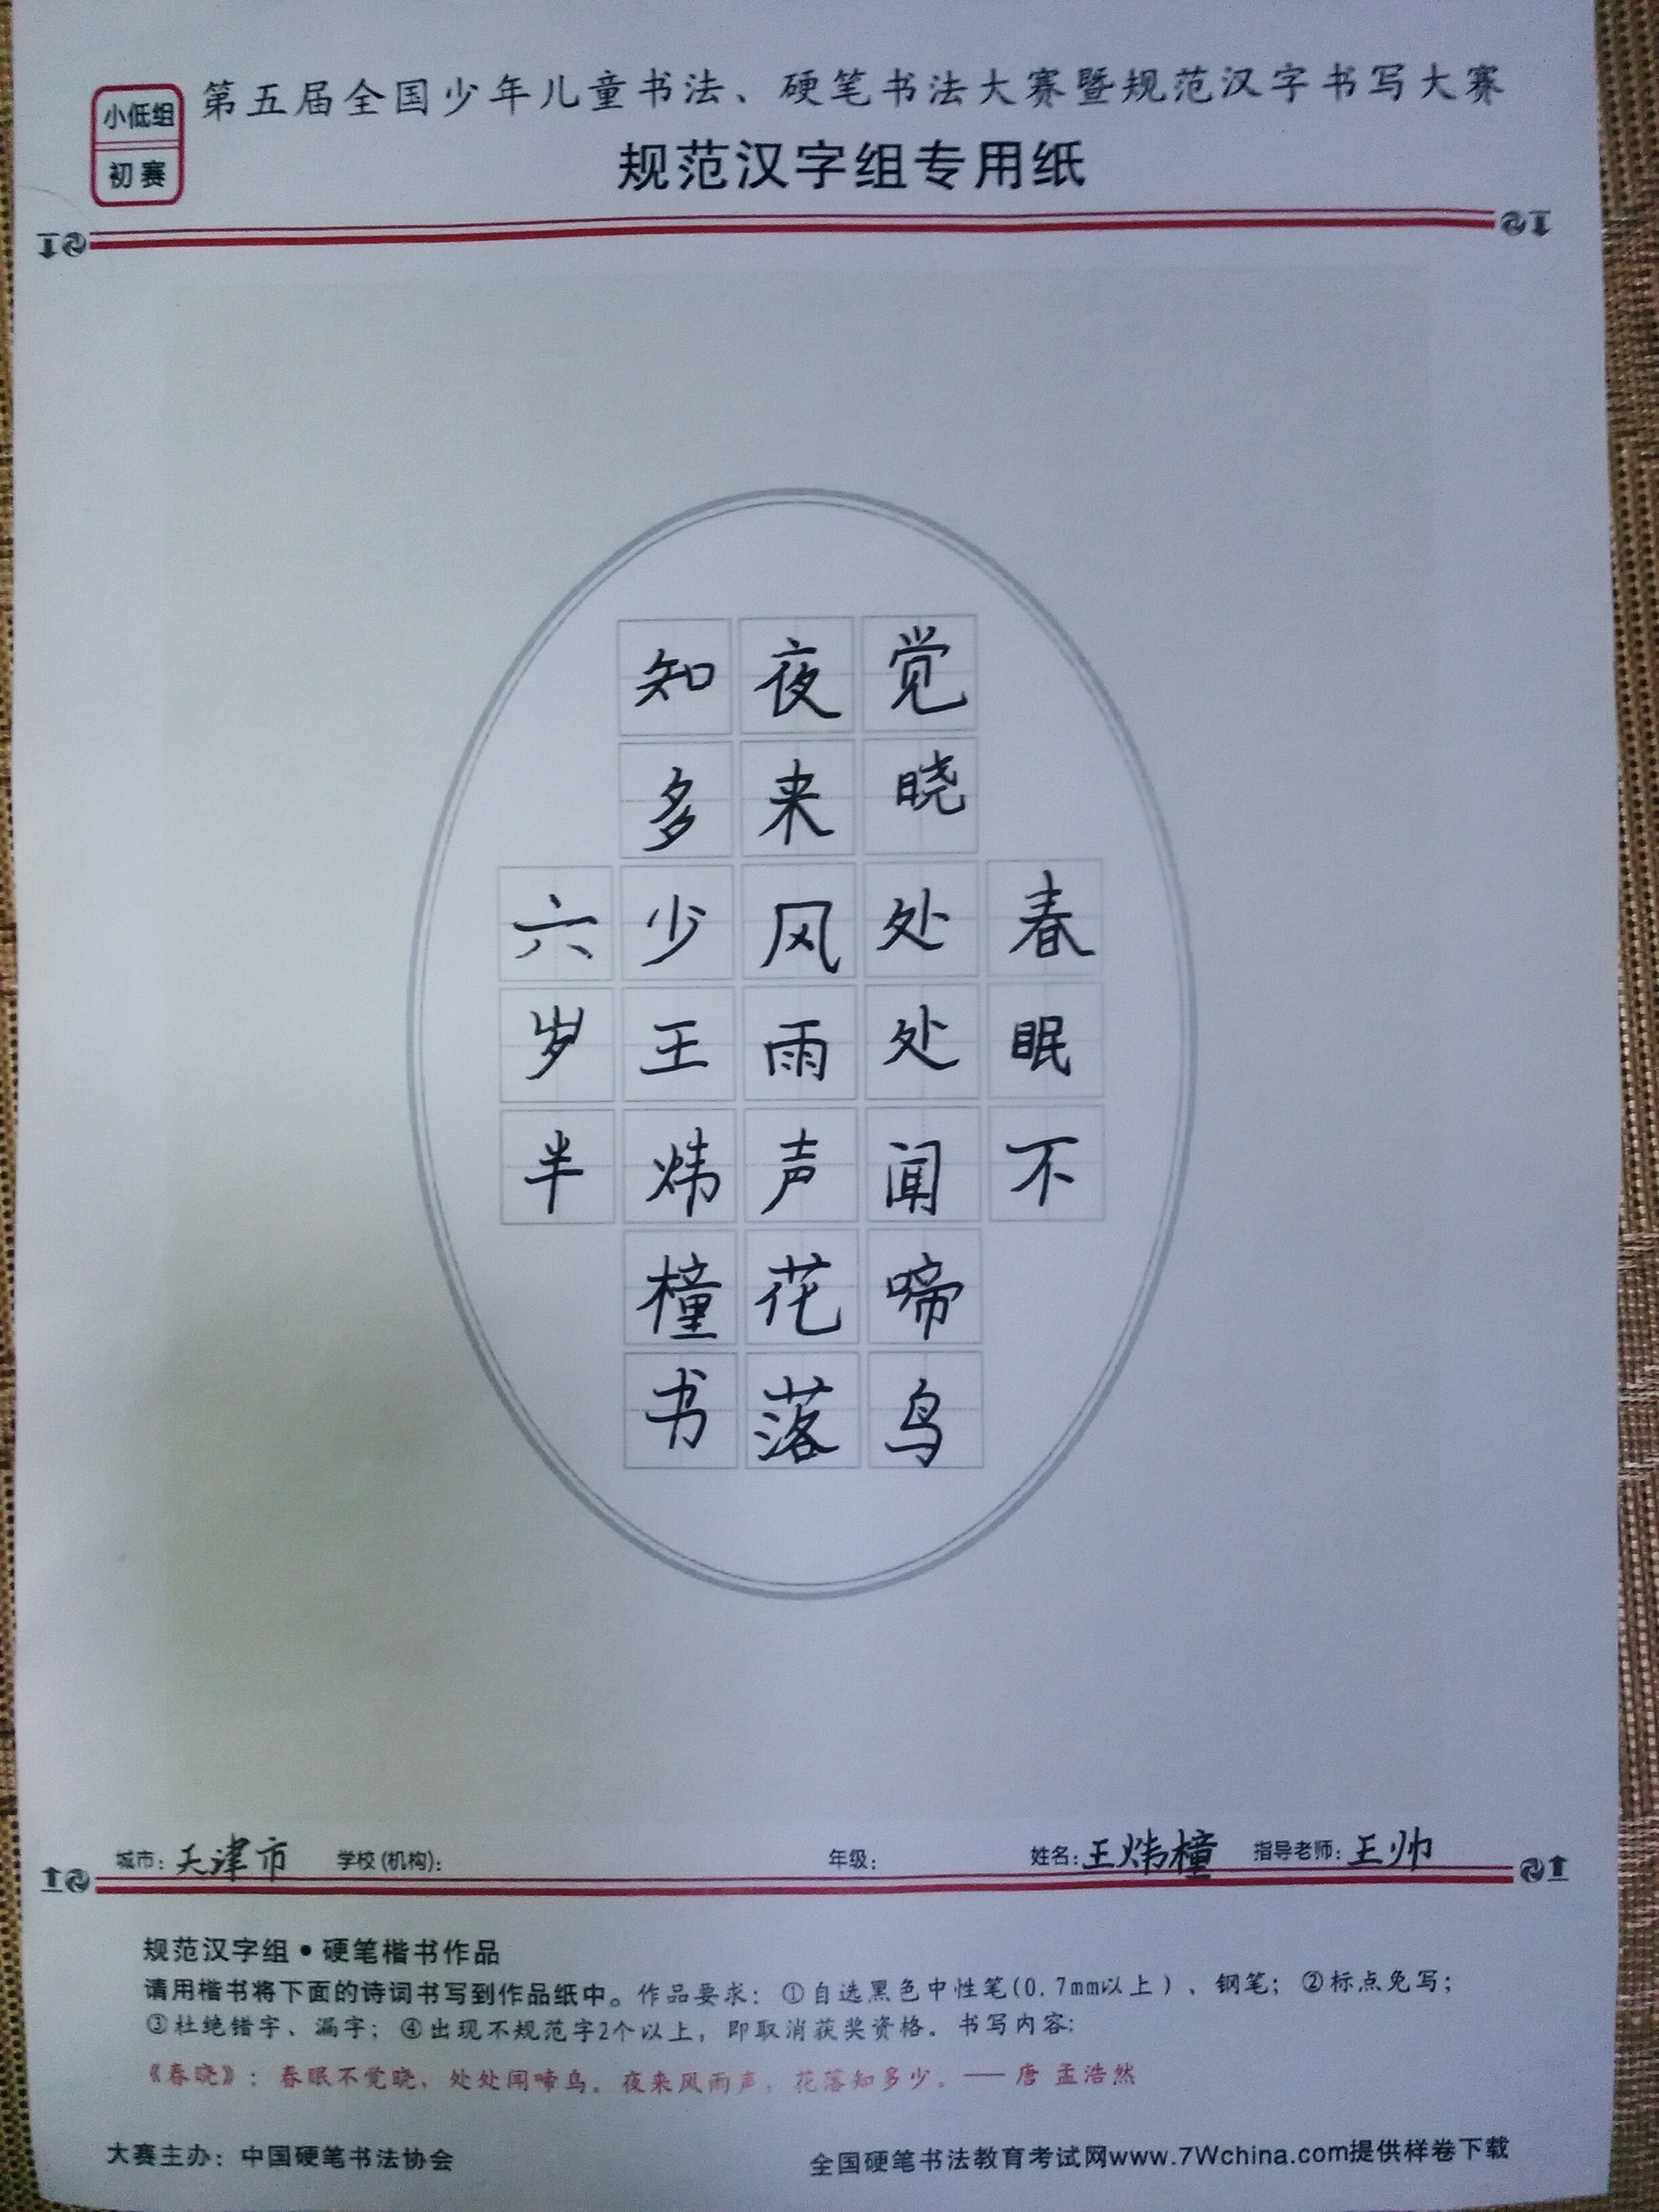 小低组
初赛
第五届全国少年儿童书法、硬笔书法大赛暨规范汉字书写大赛
规范汉字组专用纸
春眠不
觉晓处处闻啼鸟
夜来风雨声花落
知多少王炜橦书
六岁半
城市：天津市 学校(机构)： 年级： 姓名：王炜橦 指导老师：王帅
规范汉字组•硬笔楷书作品
请用楷书将下面的诗词书写到作品纸中。作品要求：①自选黑色中性笔(0.7mm以上)、钢笔；②标点免写；
③杜绝错字、漏字；④出现不规范字2个以上，即取消获奖资格。书写内容：
《春晓》：春眠不觉晓，处处闻啼鸟。夜来风雨声，花落知多少。——唐 孟浩然
大赛主办：中国硬笔书法协会
全国硬笔书法教育考试网www.7Wchina.com提供样卷下载